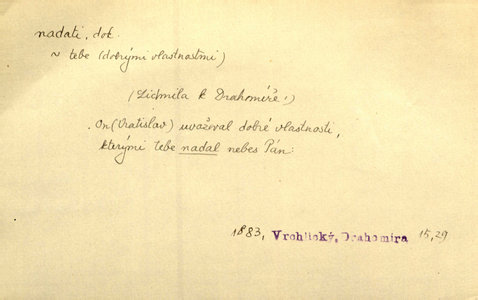 nadati, dok.
~ tebe (dobrými vlastnostmi)
(Lidmila k Drahomíře:)
On (Vratislav) uvažoval dobré vlastnosti,
kterými tebe nadal nebes Pán:
1883, Vrchlický, Drahomíra 15,29